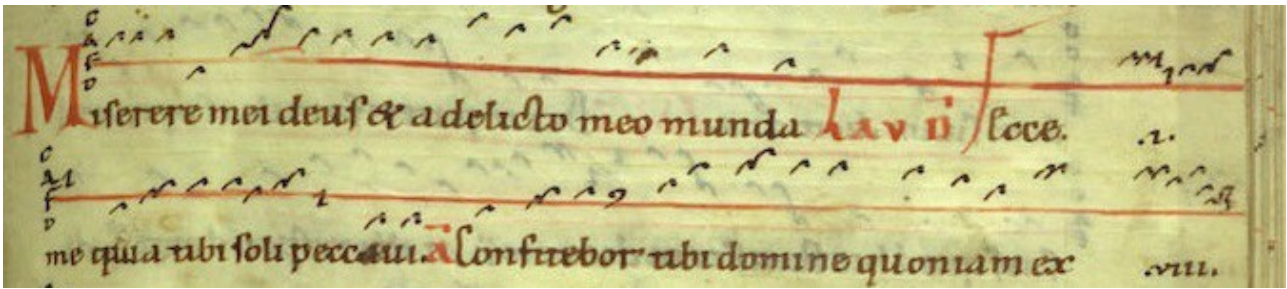 Miserere mei deus & a delicto meo munda LAUD Ecce. .i.
me quia tibi soli peccaui. A Confitebor tibi domine quoniam ex .viii.